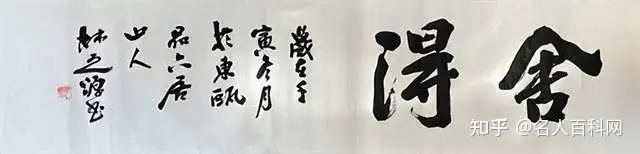 舍得
歲在壬
寅冬月
於東甌
六居
山人
林
知乎 @名人百科网